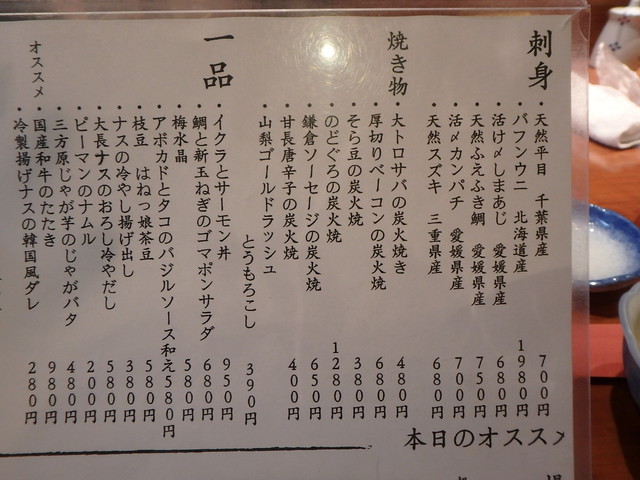 刺身
・天然平目 千葉県産 700円
・バフンウニ 北海道産 1980円
・活け〆しまあじ 愛媛県産 680円
・天然ふえふき鯛 愛媛県産 750円
・活〆カンパチ 愛媛県産 700円
・天然スズキ 三重県産 680円
焼き物
・大トロサバの炭火焼き 480円
・厚切りベーコンの炭火焼 680円
・そら豆の炭火焼 380円
・のどぐろの炭火焼 1280円
・鎌倉ソーセージの炭火焼 650円
・甘長唐辛子の炭火焼 400円
・山梨ゴールドラッシュ
とうもろこし 390円
一品
・イクラとサーモン丼 950円
・鯛と新玉ねぎのゴマポンサラダ 680円
・梅水晶 580円
・アボカドとタコのバジルソース和え 580円
・枝豆 はねっ娘茶豆 580円
・ナスの冷やし揚げ出し 380円
・大長ナスのおろし冷やだし 580円
・ピーマンのナムル 200円
・三方原じゃが芋のじゃがバタ 480円
・国産和牛のたたき 980円
オススメ
・冷製揚げナスの韓国風ダレ 280円
本日のオススメ